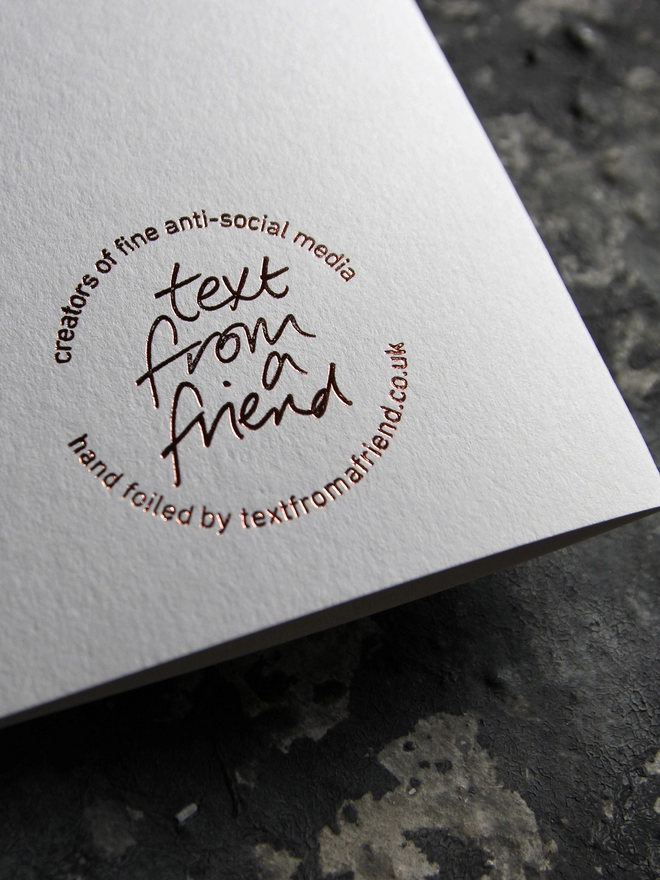 creators of fine anti-social media
text
from
a
friend
hand foiled by textfromafriend.co.uk